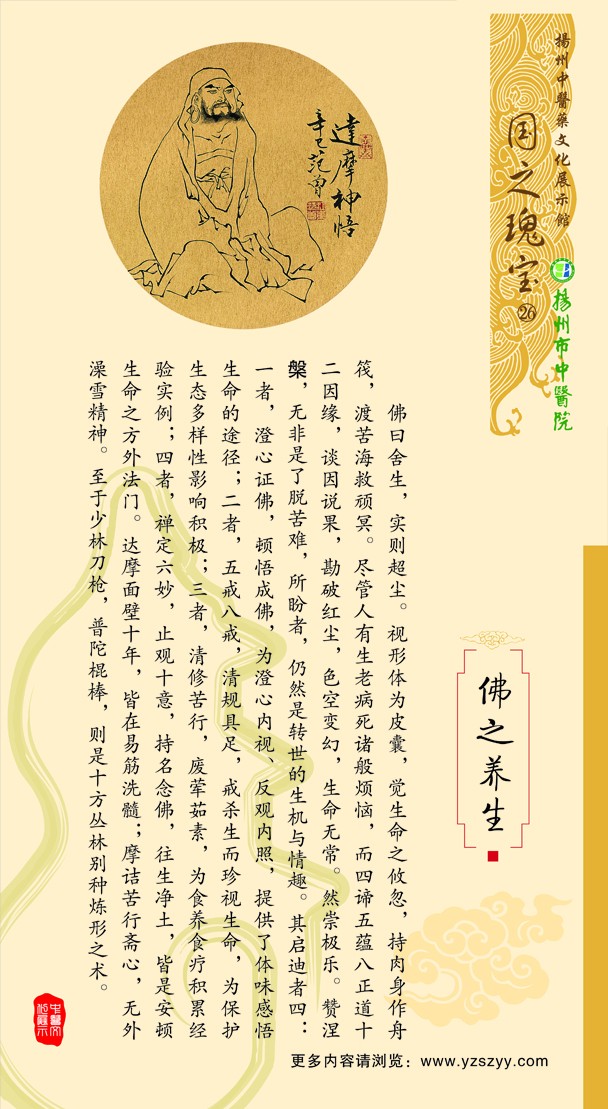 揚州中醫藥文化展示館
国之瑰宝26
揚州市中醫院
達摩神悟
辛巳范曾
佛之养生
佛曰舍生，实则超尘。视形体为皮囊，觉生命之攸忽，持肉身作舟
筏，渡苦海救顽冥。尽管人有生老病死诸般烦恼，而四谛五蕴八正道十
二因缘，谈因说果，勘破红尘，色空变幻，生命无常。然崇极乐。赞涅
槃，无非是了脱苦难，所盼者，仍然是转世的生机与情趣。其启迪者四：
一者，澄心证佛，顿悟成佛，为澄心内视、反观内照，提供了体味感悟
生命的途径；二者，五戒八戒，清规具足，戒杀生而珍视生命，为保护
生态多样性影响积极；三者，清修苦行，废荤茹素，为食养食疗积累经
验实例；四者，禅定六妙，止观十意，持名念佛，往生净土，皆是安顿
生命之方外法门。达摩面壁十年，皆在易筋洗髓；摩诘苦行斋心，无外
澡雪精神。至于少林刀枪，普陀棍棒，则是十方丛林别种炼形之术。
更多内容请浏览：www.yzszyy.com